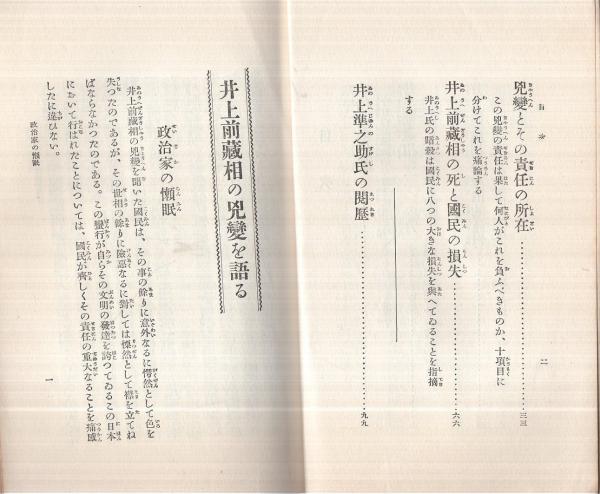 目次
二
兇變とその責任の所在……………………三三
この兇變の責任は果して何人がこれを負ふべきものか、十項目に
分けてこれを痛論する
井上前藏相の死と國民の損失……………………六六
井上氏の暗殺は國民に八つの大きな損失を與へてゐることを指摘
する
井上準之助氏の閱歷……………………九九
井上前藏相の兇變を語る
政治家の懶眠
井上前藏相の兇變を聞いた國民は、その事の餘りに意外なるに愕然として色を
失つたのであるが、その世相の餘りに險惡なるに對しては慄然として襟を立てね
ばならなかつたのである。この蠻行が自らその文明の發達を誇つてゐるこの日本
において行はれたことについては、國民が齊しくその責任の重大なることを痛感
したに違ひない。
政治家の懶眠
一